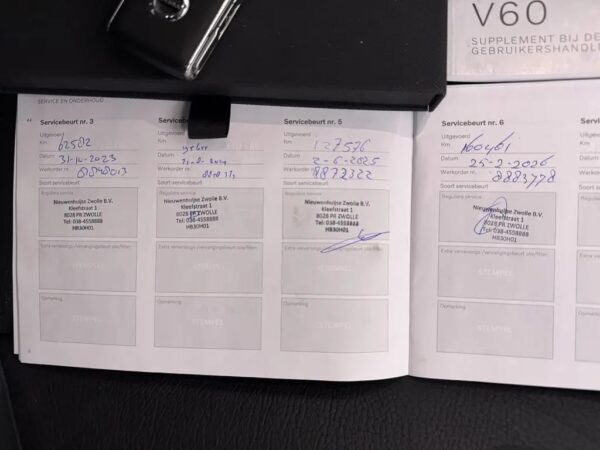 V60
SUPPLEMENT BIJ DE
GEBRUIKERSHANDL
SERVICE EN ONDERHOUD
Servicebeurt nr. 3
Uitgevoerd
Km 62582
Datum 31-10-2023
Werkorder nr. 8848013
Soort servicebeurt
Reguliere service
Nieuwenhuijse Zwolle B.V.
Kleefstraat 1
8028 PR ZWOLLE
Tel: 038-4558888
HB30H01
Extra verversings-/vervangingsbeurt olie/filter:
STEMPEL
Opmerking:
STEMPEL
Servicebeurt nr.
Km
Datum
Werkorder nr.
Soort servicebeurt
Reguliere service
Nieuwenhuijse Zwolle B.V.
Kleefstraat 1
8028 PR ZWOLLE
Tel: 038-4558888
HB30H01
Extra verversings-/vervangingsbeurt olie/filter:
STEMPEL
Opmerking:
STEMPEL
Servicebeurt nr. 5
Uitgevoerd
Km 127576
Datum 2-6-2025
Werkorder nr. 8872322
Soort servicebeurt
Reguliere service
Nieuwenhuijse Zwolle B.V.
Kleefstraat 1
8028 PR ZWOLLE
Tel: 038-4558888
HB30H01
Extra verversings-/vervangingsbeurt olie/filter:
STEMPEL
Opmerking:
STEMPEL
Servicebeurt nr. 6
Uitgevoerd
Km 160461
Datum 25-2-2026
Werkorder nr. 8883778
Soort servicebeurt
Reguliere service
Nieuwenhuijse Zwolle B.V.
Kleefstraat 1
8028 PR ZWOLLE
Tel: 038-4558888
HB30H01
Extra verversings-/vervangingsbeurt olie/filter:
STEMPEL
Opmerking:
STEMPEL